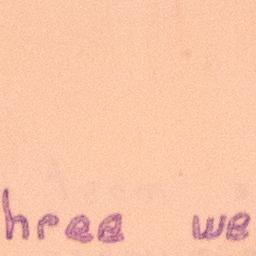 hree we